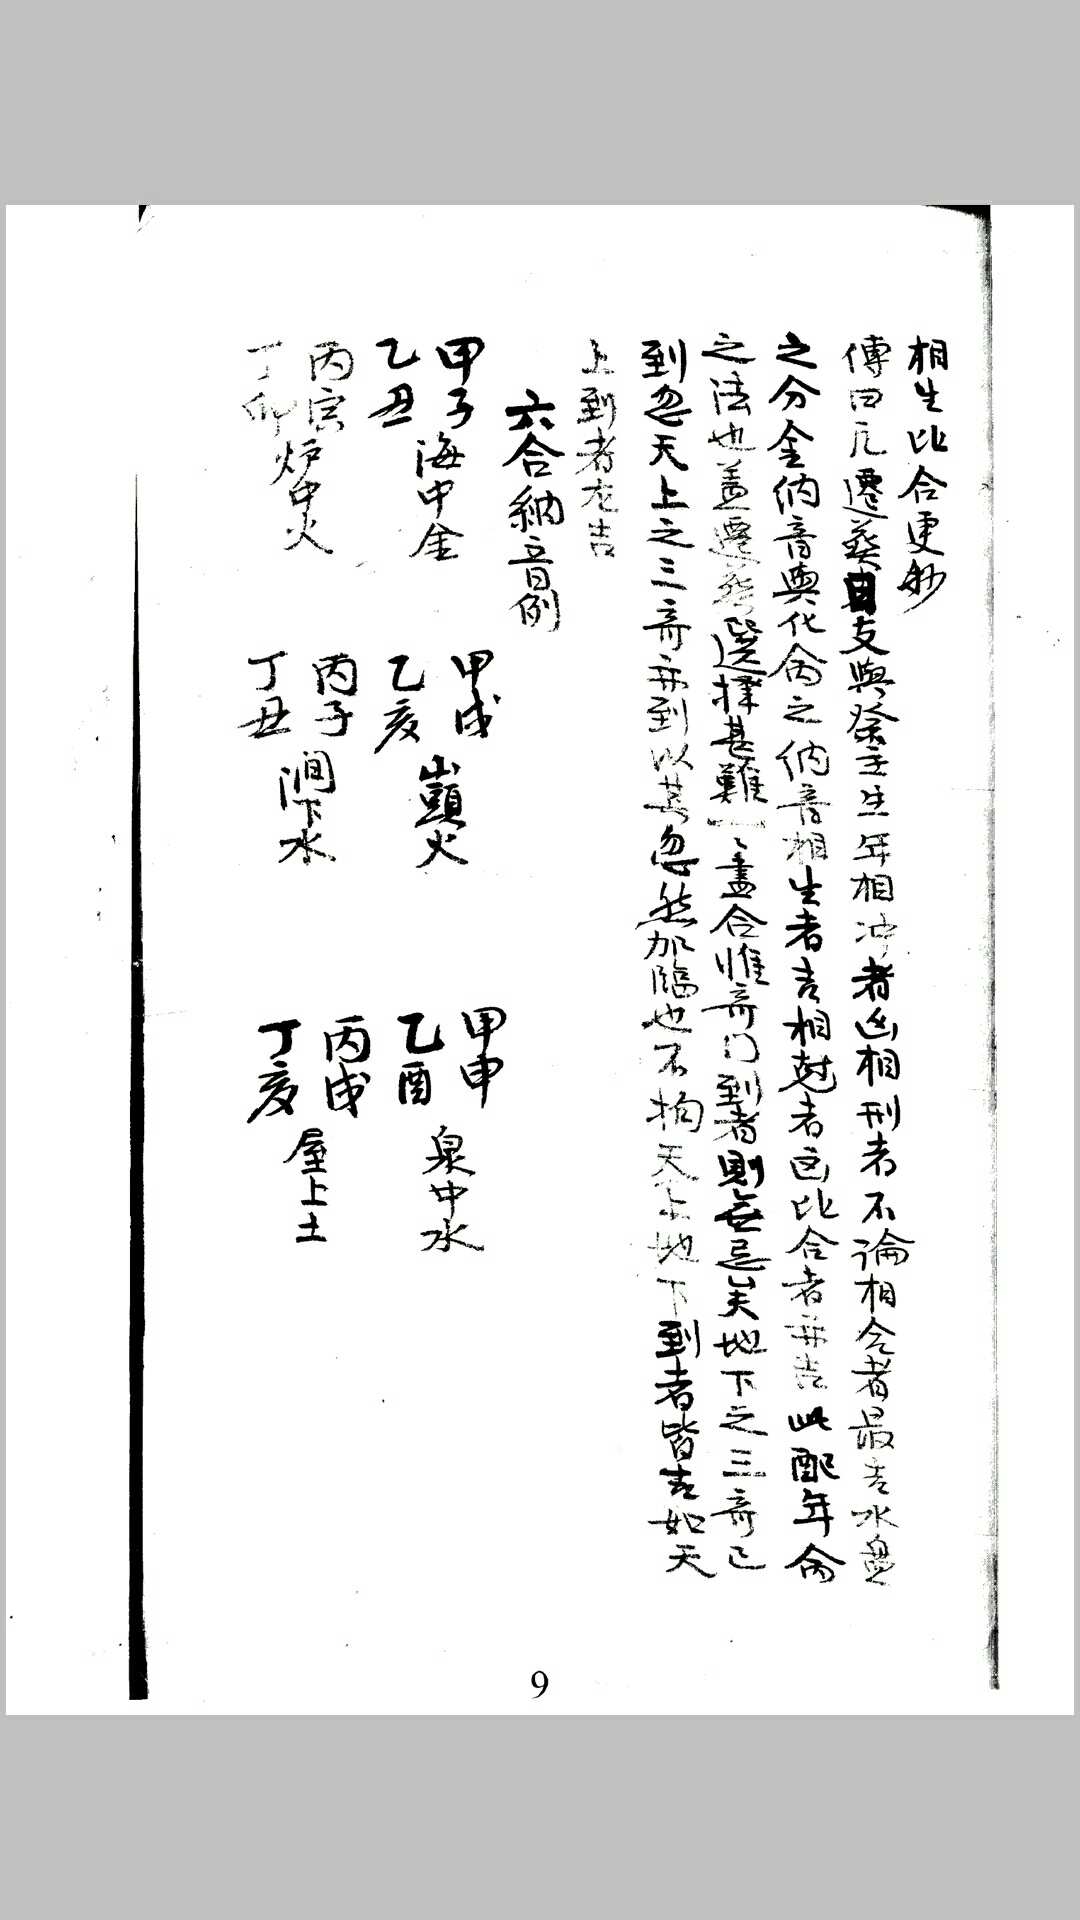 相生比合更妙
傳曰凡遷葬日支與祭主生年相冲者凶相刑者不論相合者最吉水盤
之分金纳音與化命之纳音相生者吉相尅者凶比合者亦吉此配年命
之法也盖遷葬選擇甚難一丶盡合惟奇门到者則無忌矣地下之三奇已
到忽天上之三奇亦到以其忽然加臨也不拘天上地下到者皆吉如天
上到者尤吉
六合納音例
甲子 乙丑 海中金 甲戌 乙亥 山頭火 甲申 乙酉 泉中水
丙寅 丁卯 炉中火 丙子 丁丑 澗下水 丙戌 丁亥 屋上土
9